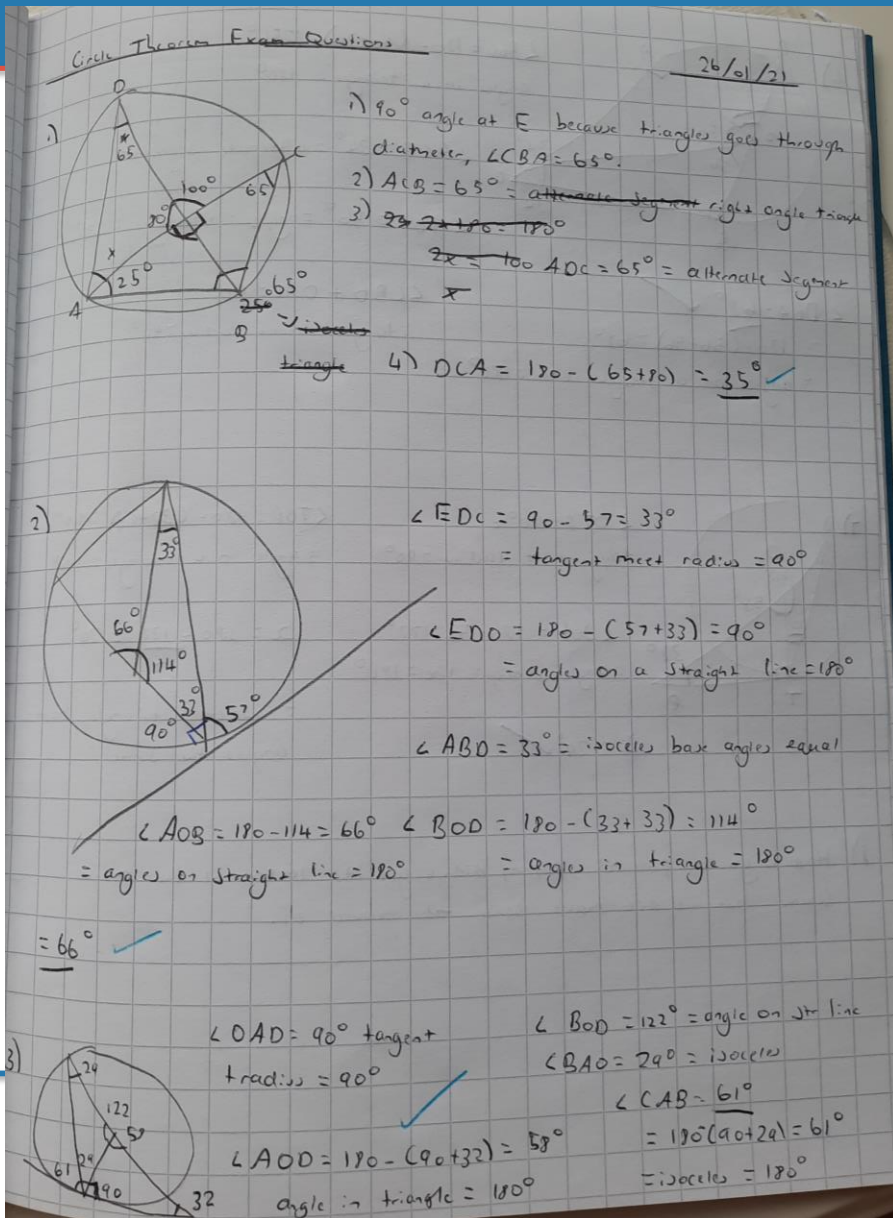 Circle Theorem Exam Questions
26/01/21
1)
D
65
100°
C
65
80°
x
25°
A
65°
250
B
= isoceles
triangle
1) 90° angle at E because triangles goes through
diatmeter, ∠CBA = 65°.
2) ACB = 65° = alternate segment right angle triangle
3) 2x + 80 = 180°
2x = 100 ADC = 65° = alternate segment
x
4) DCA = 180 - (65+80) = 35°
2)
33°
66°
114°
33°
57°
90°
∠EDC = 90 - 57 = 33°
= tangent meet radius = 90°
∠EDO = 180 - (57+33) = 90°
= angles on a straight line = 180°
∠ABD = 33° = isoceles base angles equal
∠AOB = 180 - 114 = 66° ∠BOD = 180 - (33+33) = 114°
= angles on straight line = 180° = angles in triangle = 180°
= 66°
3)
29
122
58
61
29
90
32
∠OAD = 90° tangent
+radius = 90°
∠AOD = 180 - (90+32) = 58°
angle in triangle = 180°
∠BOD = 122° = angle on str line
∠BAO = 29° = isoceles
∠CAB = 61°
= 180-(90+29) = 61°
= isoceles = 180°